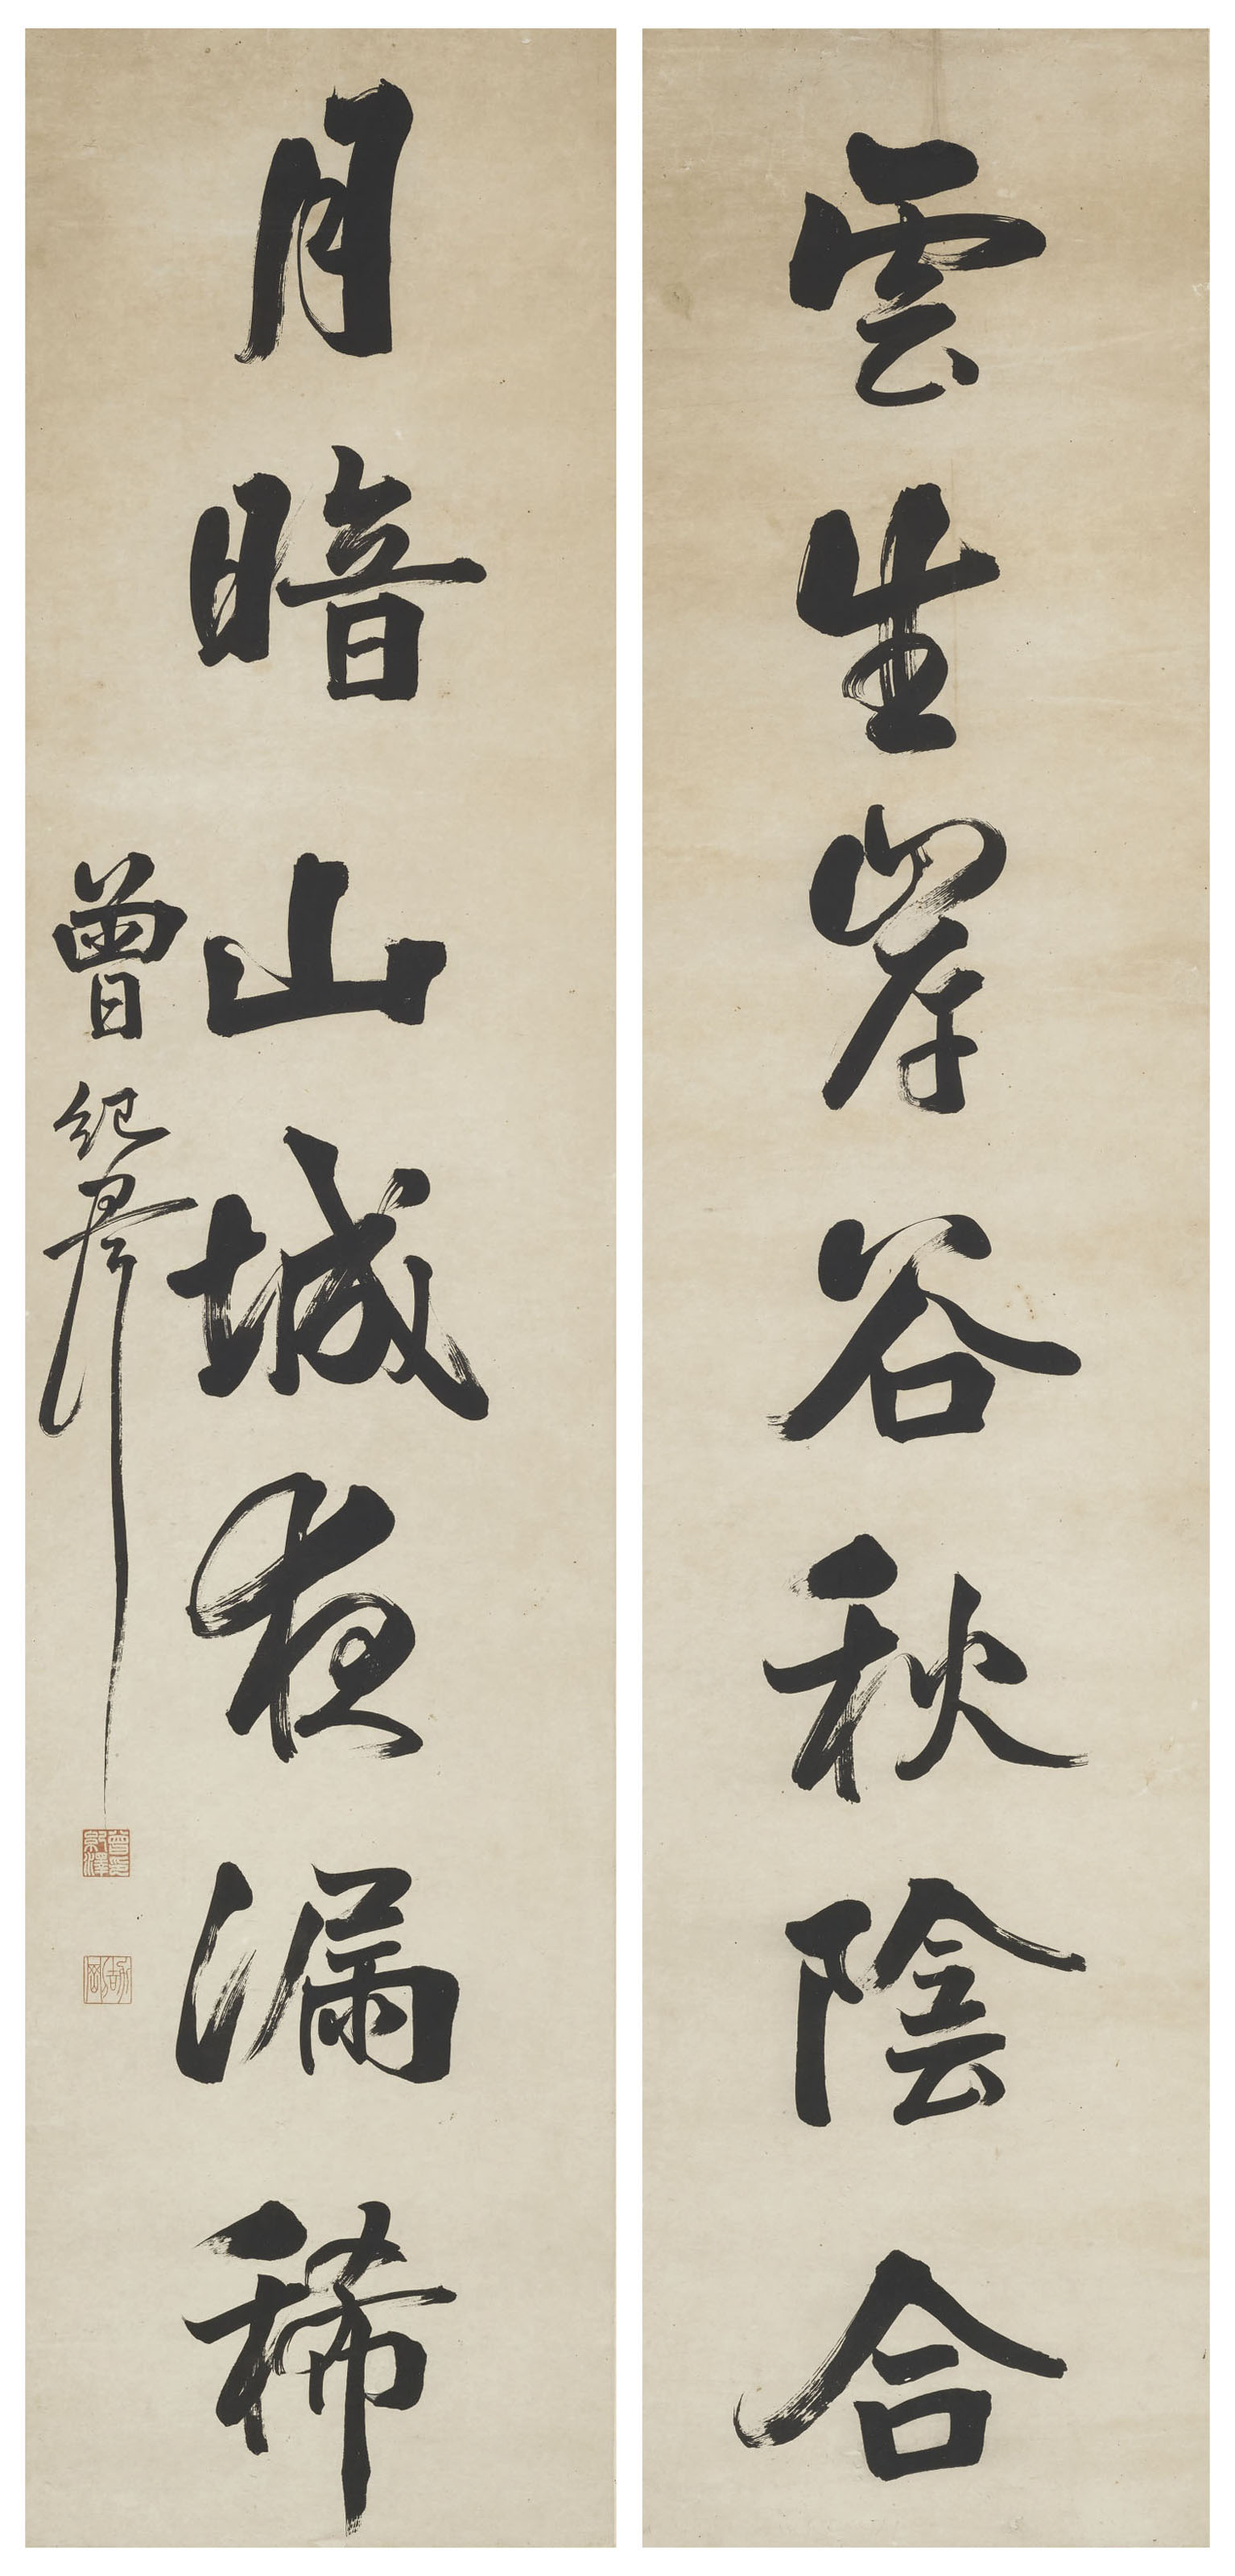 雲生岸谷秋陰合
月暗山城夜漏稀
曾紀澤
曾紀澤印
劼剛